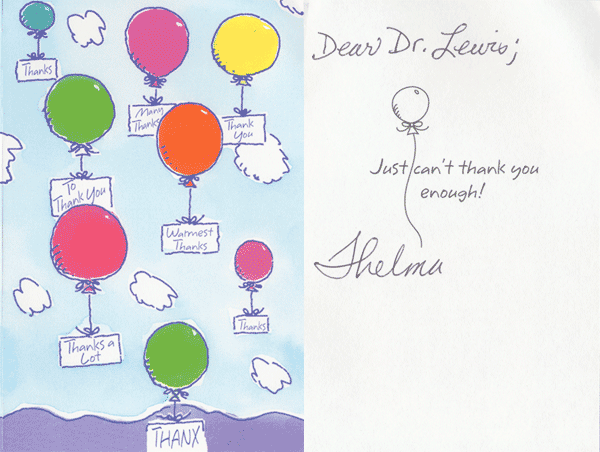 Thanks
Many
Thanks
Thank
You
To
Thank You
Warmest
Thanks
Thanks
Thanks a
Lot
THANX
Dear Dr. Lewis;
Just can't thank you
enough!
Thelma